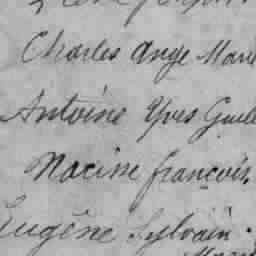 Charles Ange Marie
Antoine Yves Guill
Maxime françois.
Eugène Sylvain.